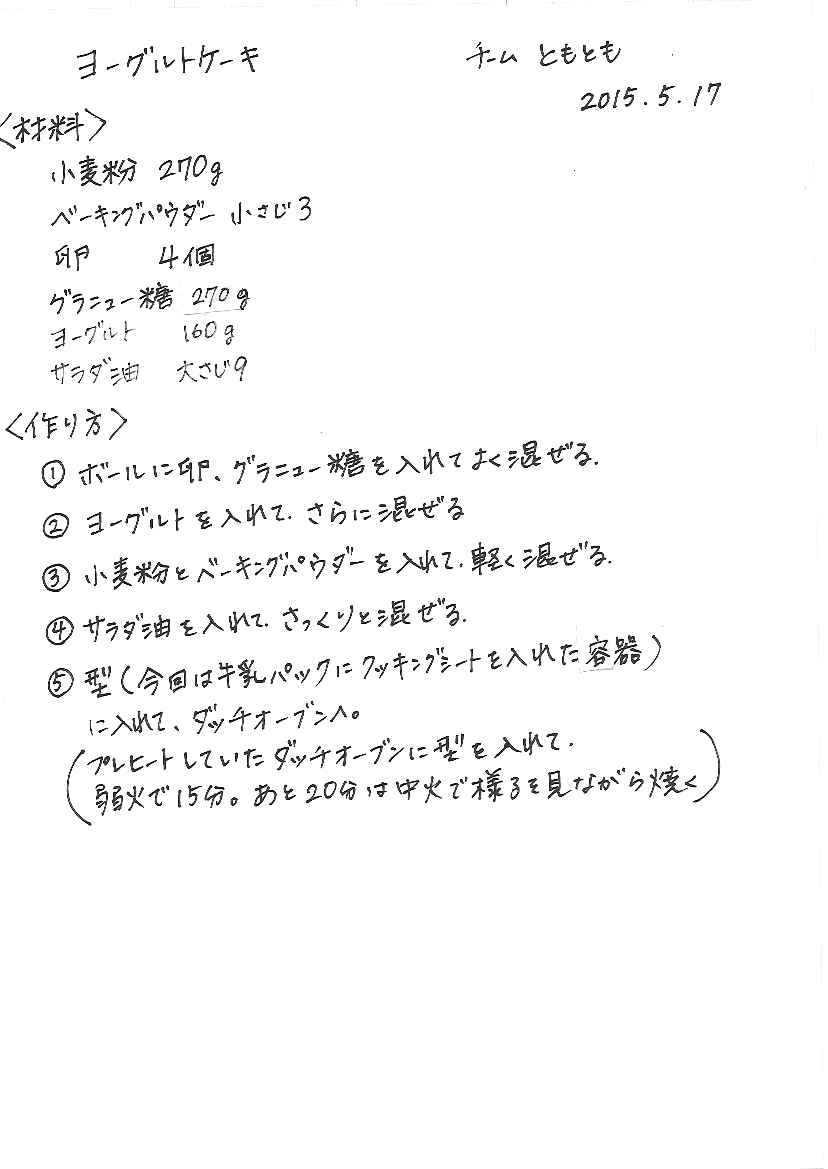 ヨーグルトケーキ チーム ともとも
2015.5.17
〈材料〉
小麦粉 270g
ベーキングパウダー 小さじ3
卵 4個
グラニュー糖 270g
ヨーグルト 160g
サラダ油 大さじ9
〈作り方〉
① ボールに卵、グラニュー糖を入れてよく混ぜる.
② ヨーグルトを入れて.さらに混ぜる
③ 小麦粉とベーキングパウダーを入れて.軽く混ぜる.
④ サラダ油を入れて.さっくりと混ぜる.
⑤ 型(今回は牛乳パックにクッキングシートを入れた容器)
に入れて、ダッチオーブンへ。
(プレヒートしていたダッチオーブンに型を入れて.
弱火で15分。あと20分は中火で様子を見ながら焼く)